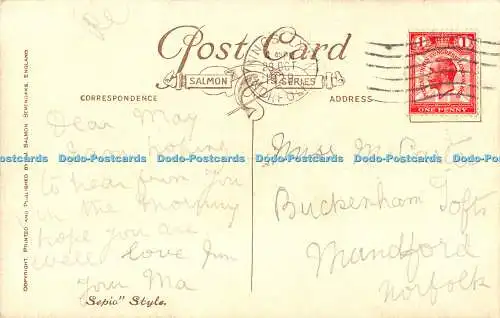 Post Card
SALMON SERIES
CORRESPONDENCE
ADDRESS
1 1
ONE PENNY
28 OCT
Dear May
to hear from you
in the morning
hope you are
well love from
your Ma
Miss M
Buckenham Tofts
Mundford
Norfolk
"Sepio" Style.
COPYRIGHT. PRINTED AND PUBLISHED BY J. SALMON SEVENOAKS, ENGLAND
Dodo-Postcards Dodo-Postcards Dodo-Postcards Dodo-Postcards Dodo-Postcards